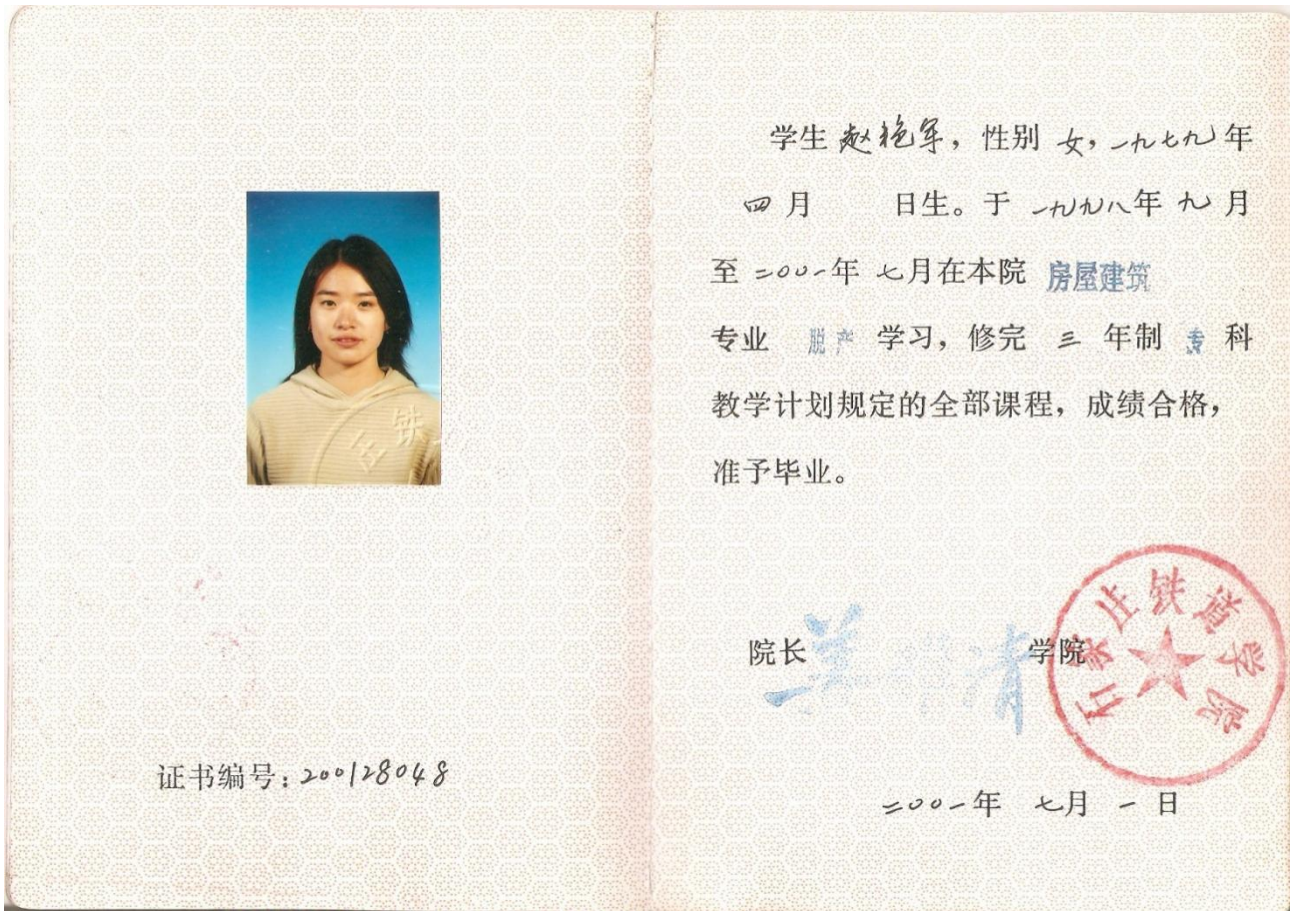 庄铁
证书编号：200128048
学生 赵艳军，性别 女，一九七九年
四月 日生。于 一九九八年 九月
至 二〇〇一年 七月在本院 房屋建筑
专业 脱产 学习，修完 三 年制 专 科
教学计划规定的全部课程，成绩合格，
准予毕业。
院长 清 学院
石家庄铁道学院
二〇〇一年 七月 一日